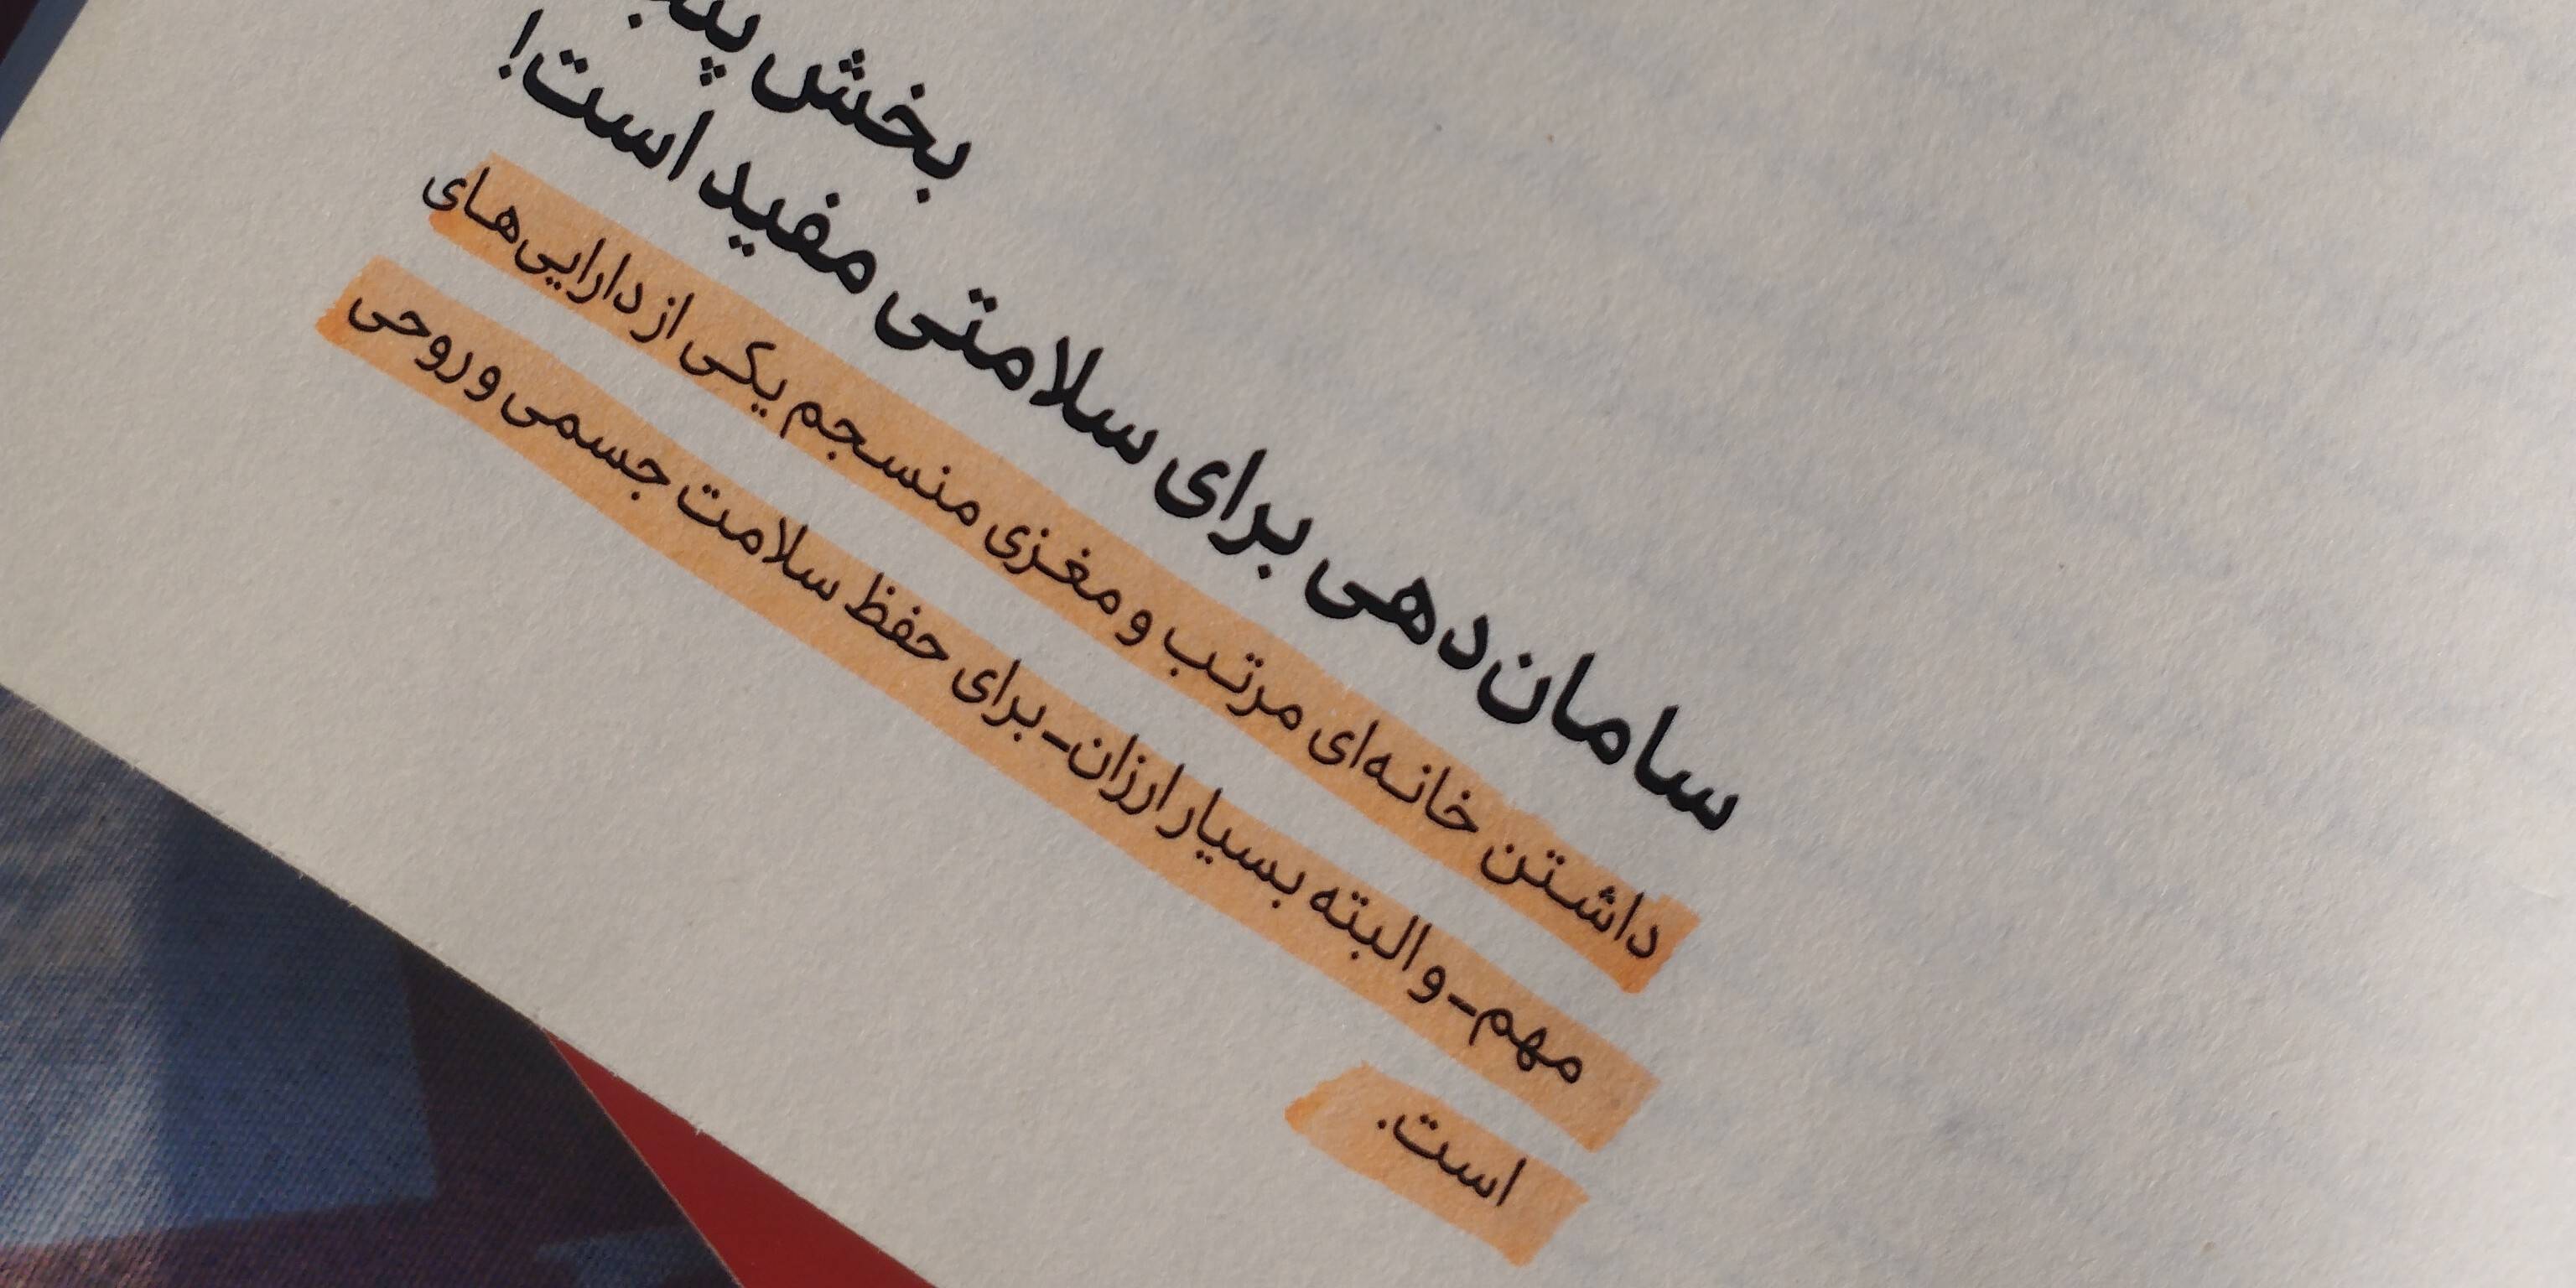 بخش
سامان‌دهی برای سلامتی مفید است!
داشتن خانه‌ای مرتب و مغزی منسجم یکی از دارایی‌های
مهم-و البته بسیار ارزان-برای حفظ سلامت جسمی و روحی
است.